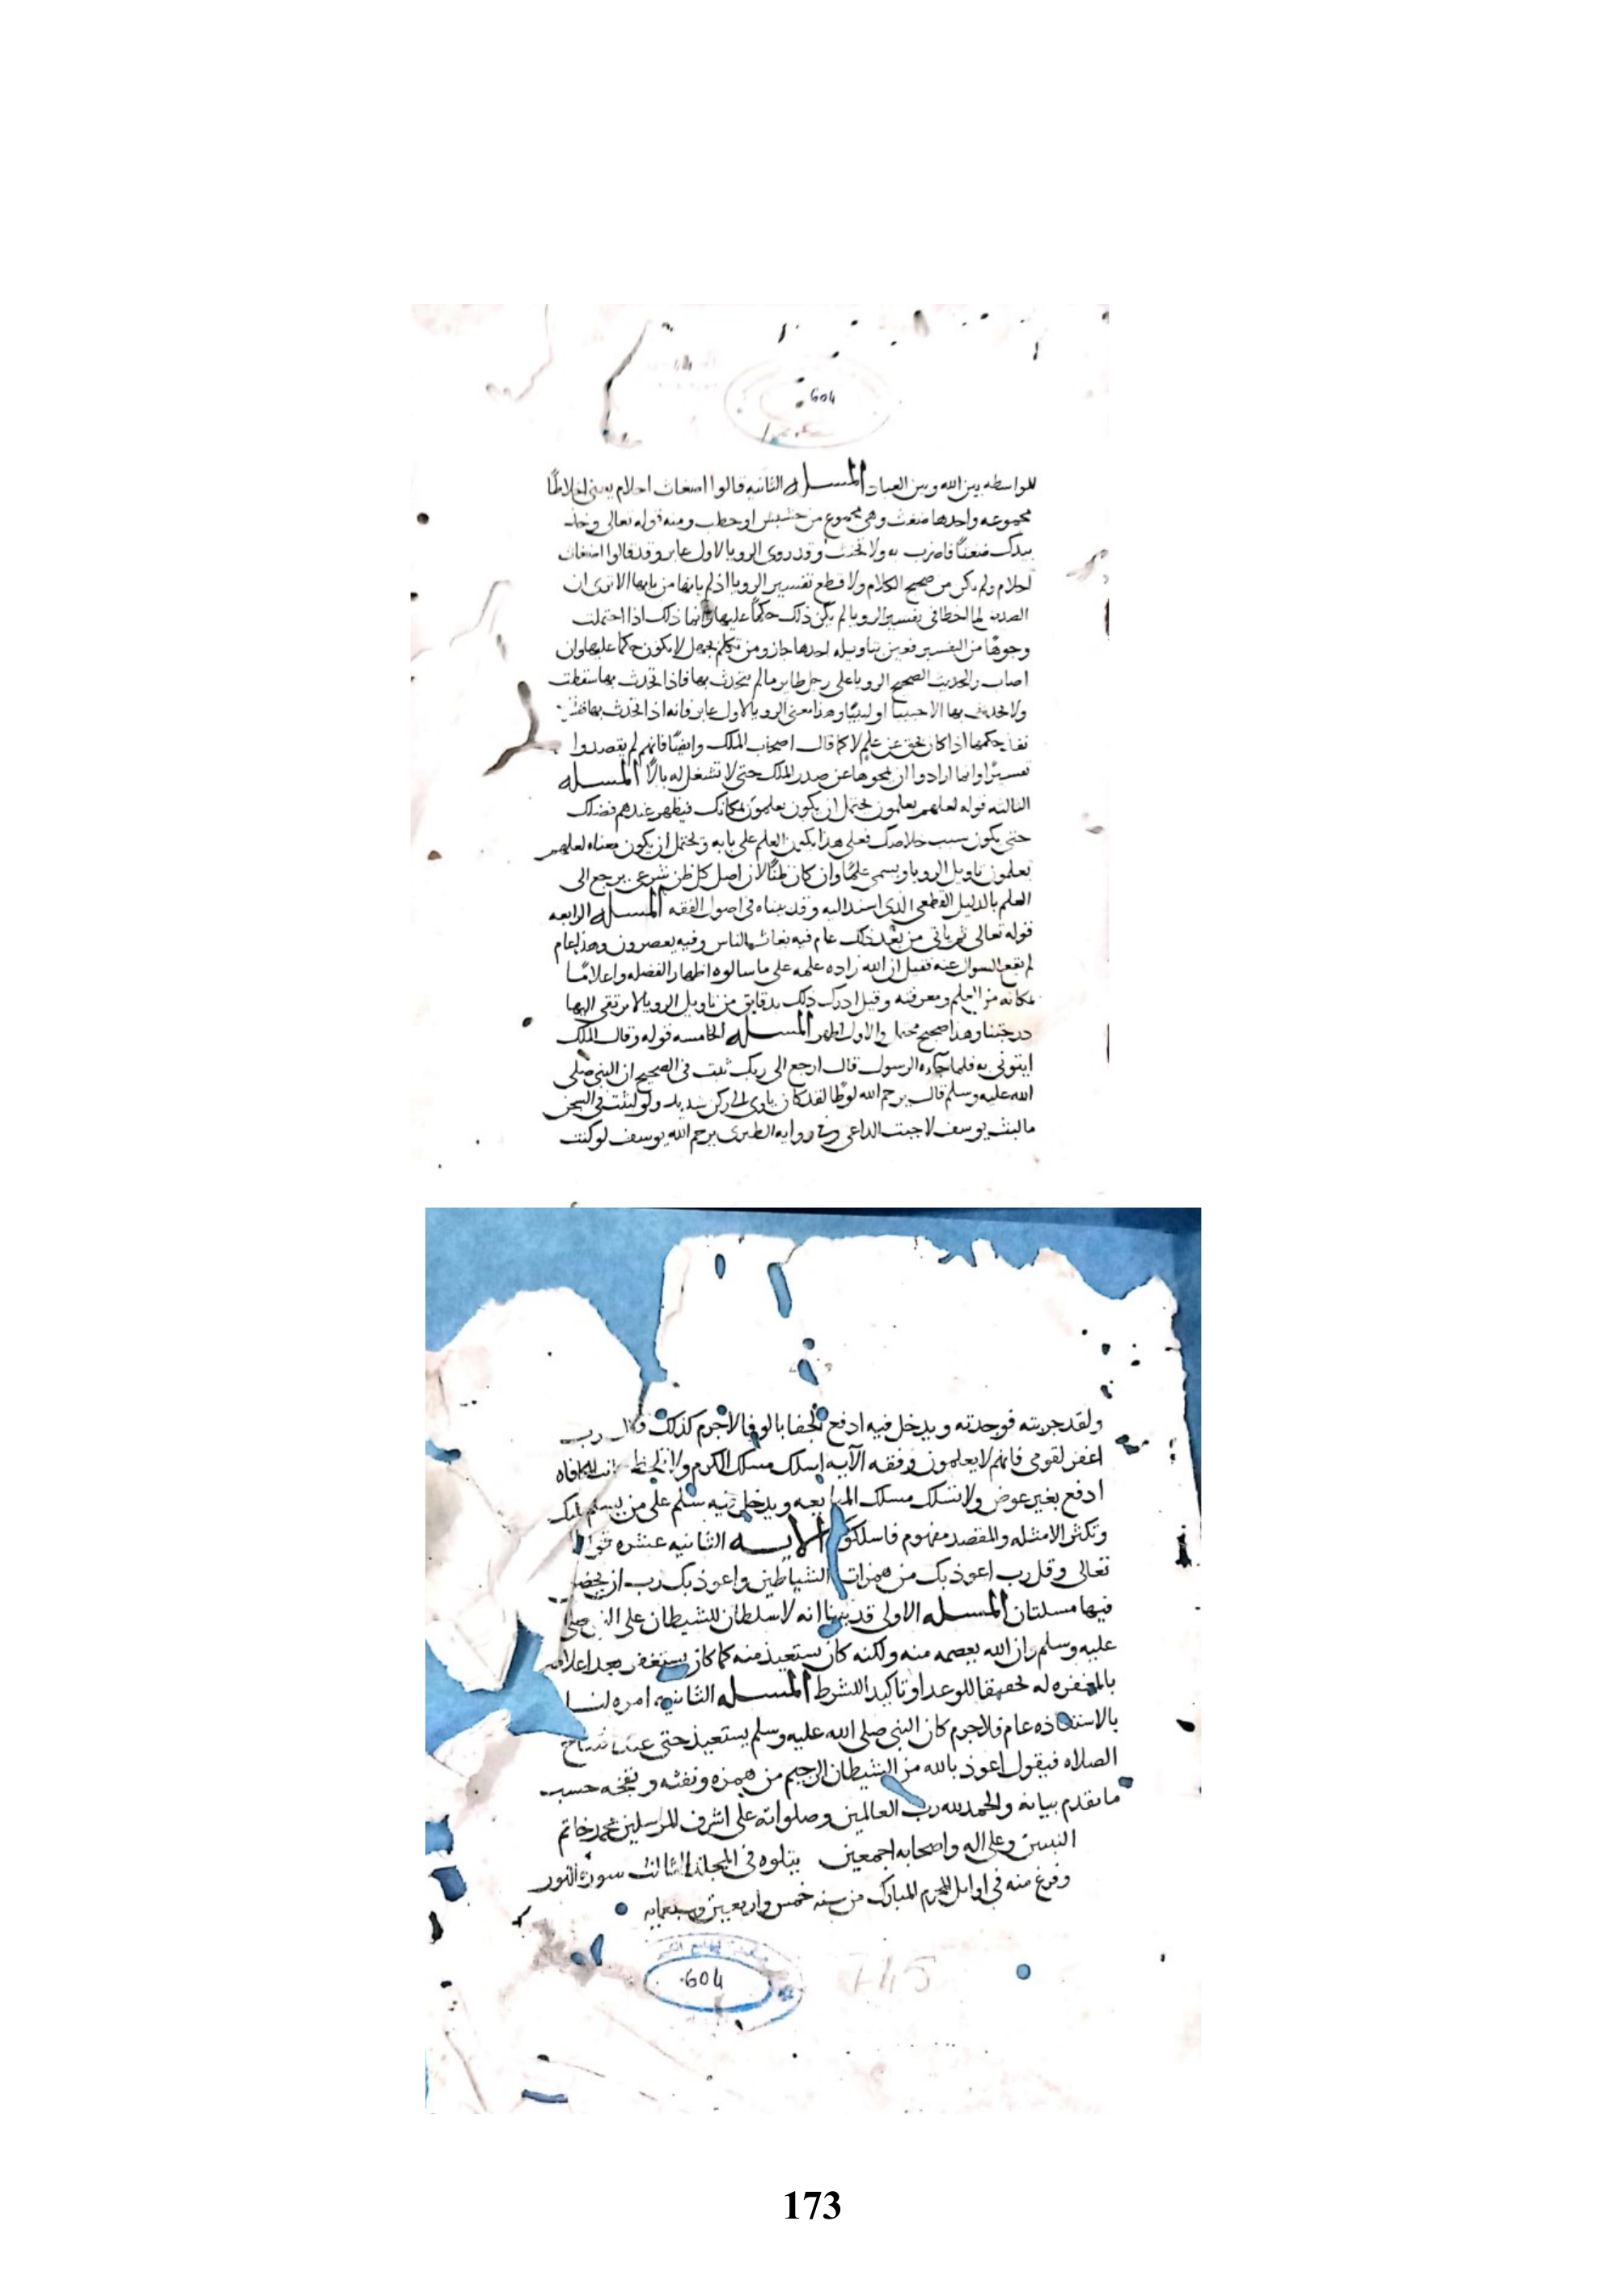 604
للواسطه بين الله وبين العباد المسله الثانيه قالوا اضغاث احلام يعنى اخلاطا
مجموعه واحدها ضغث وهى مجموع من حشيش او حطب ومنه قوله تعالى وخذ
بيدك ضغثا فاضرب به ولا تحنث وقد روى الرويا لاول عابر وقد قالوا اضغاث
احلام ولم يكن من صحيح الكلام ولا قطع تفسير الرويا اذ لم ياتها من بابها الا ترى ان
الصديق لما اخطا فى تفسير الرويا لم يكن ذلك حكما عليها وانما ذلك اذا احتملت
وجوها من التفسير فعين بتاويله احدها جاز ومن تكلم بجهل لا يكون حاكما عليها وان
اصاب والحديث الصحيح الرويا على رجل طاير ما لم يتحدث بها فاذا تحدث بها سقطت
ولا تحدث بها الا حبيبا او لبيبا وهذا معنى الرويا لاول عابر فانه اذا تحدث بها ففسرت
نفد حكمها اذا كان بحق عن علم لا كما قال اصحاب الملك وايضا فانهم لم يقصدوا
تفسيرا وانما ارادوا ان يمحوها عن صدر الملك حتى لا تشغل له بالا المسله
الثالثه قوله لعلهم يعلمون يحتمل ان يكون يعلمون بمكانك فيظهر عندهم فضلك
حتى يكون سبب خلاصك فعلى هذا يكون العلم على بابه ويحتمل ان يكون معناه لعلهم
يعلمون تاويل الرويا ويسمى علما وان كان ظنا لان اصل كل ظن شرعى يرجع الى
العلم بالدليل القطعى الذى استند اليه وقد بيناه فى اصول الفقه المسله الرابعه
قوله تعالى ثم ياتى من بعد ذلك عام فيه يغاث الناس وفيه يعصرون وهذا عام
لم يقع السوال عنه فقيل ان الله زاده علمه على ما سالوه اظهارا لفضله واعلاما
بمكانه من العلم ومعرفته وقيل ادرك ذلك بدقايق من تاويل الرويا لا ترتقى اليها
درجتنا وهذا صحيح محتمل والاول اظهر المسله الخامسه قوله وقال الملك
ايتونى به فلما جاءه الرسول قال ارجع الى ربك ثبت فى الصحيح ان النبى صلى
الله عليه وسلم قال يرحم الله لوطا لقد كان ياوى الى ركن شديد ولو لبثت فى السجن
ما لبث يوسف لاجبت الداعى وفى روايه الطبرى يرحم الله يوسف لو كنت
ولقد جربته فوجدته ويدخل فيه ادفع الجفا بالوفا لا جرم كذلك قال رب
اغفر لقومى فانهم لا يعلمون وفقه الآيه اسلك مسلك الكرم ولا تلحظ المكافاه
ادفع بغير عوض ولا تسلك مسلك المبايعه ويدخل فيه سلم على من يسلم عليك
وتكثر الامثله والمقصد مفهوم فاسلكوه الايه الثانيه عشره قوله
تعالى وقل رب اعوذ بك من همزات الشياطين واعوذ بك رب ان يحضرون
فيها مسلتان المسله الاولى قد بينا انه لا سلطان للشيطان على النبى صلى
عليه وسلم وان الله يعصمه منه ولكنه كان يستعيذ منه كما كان يستغفر بعد اعلامه
بالمغفره له تحقيقا للوعد او تاكيدا للشرط المسله الثانيه امره لنا
بالاستعاذه عام فلا جرم كان النبى صلى الله عليه وسلم يستعيذ حتى عند افتتاح
الصلاه فيقول اعوذ بالله من الشيطان الرجيم من همزه ونفثه ونفخه حسب
ما تقدم بيانه والحمد لله رب العالمين وصلواته على اشرف المرسلين محمد خاتم
النبيين وعلى اله واصحابه اجمعين يتلوه فى المجلد الثالث سورة النور
وفرغ منه فى اوايل المحرم المبارك من سنه خمس واربعين وسبعمايه
604
745
173